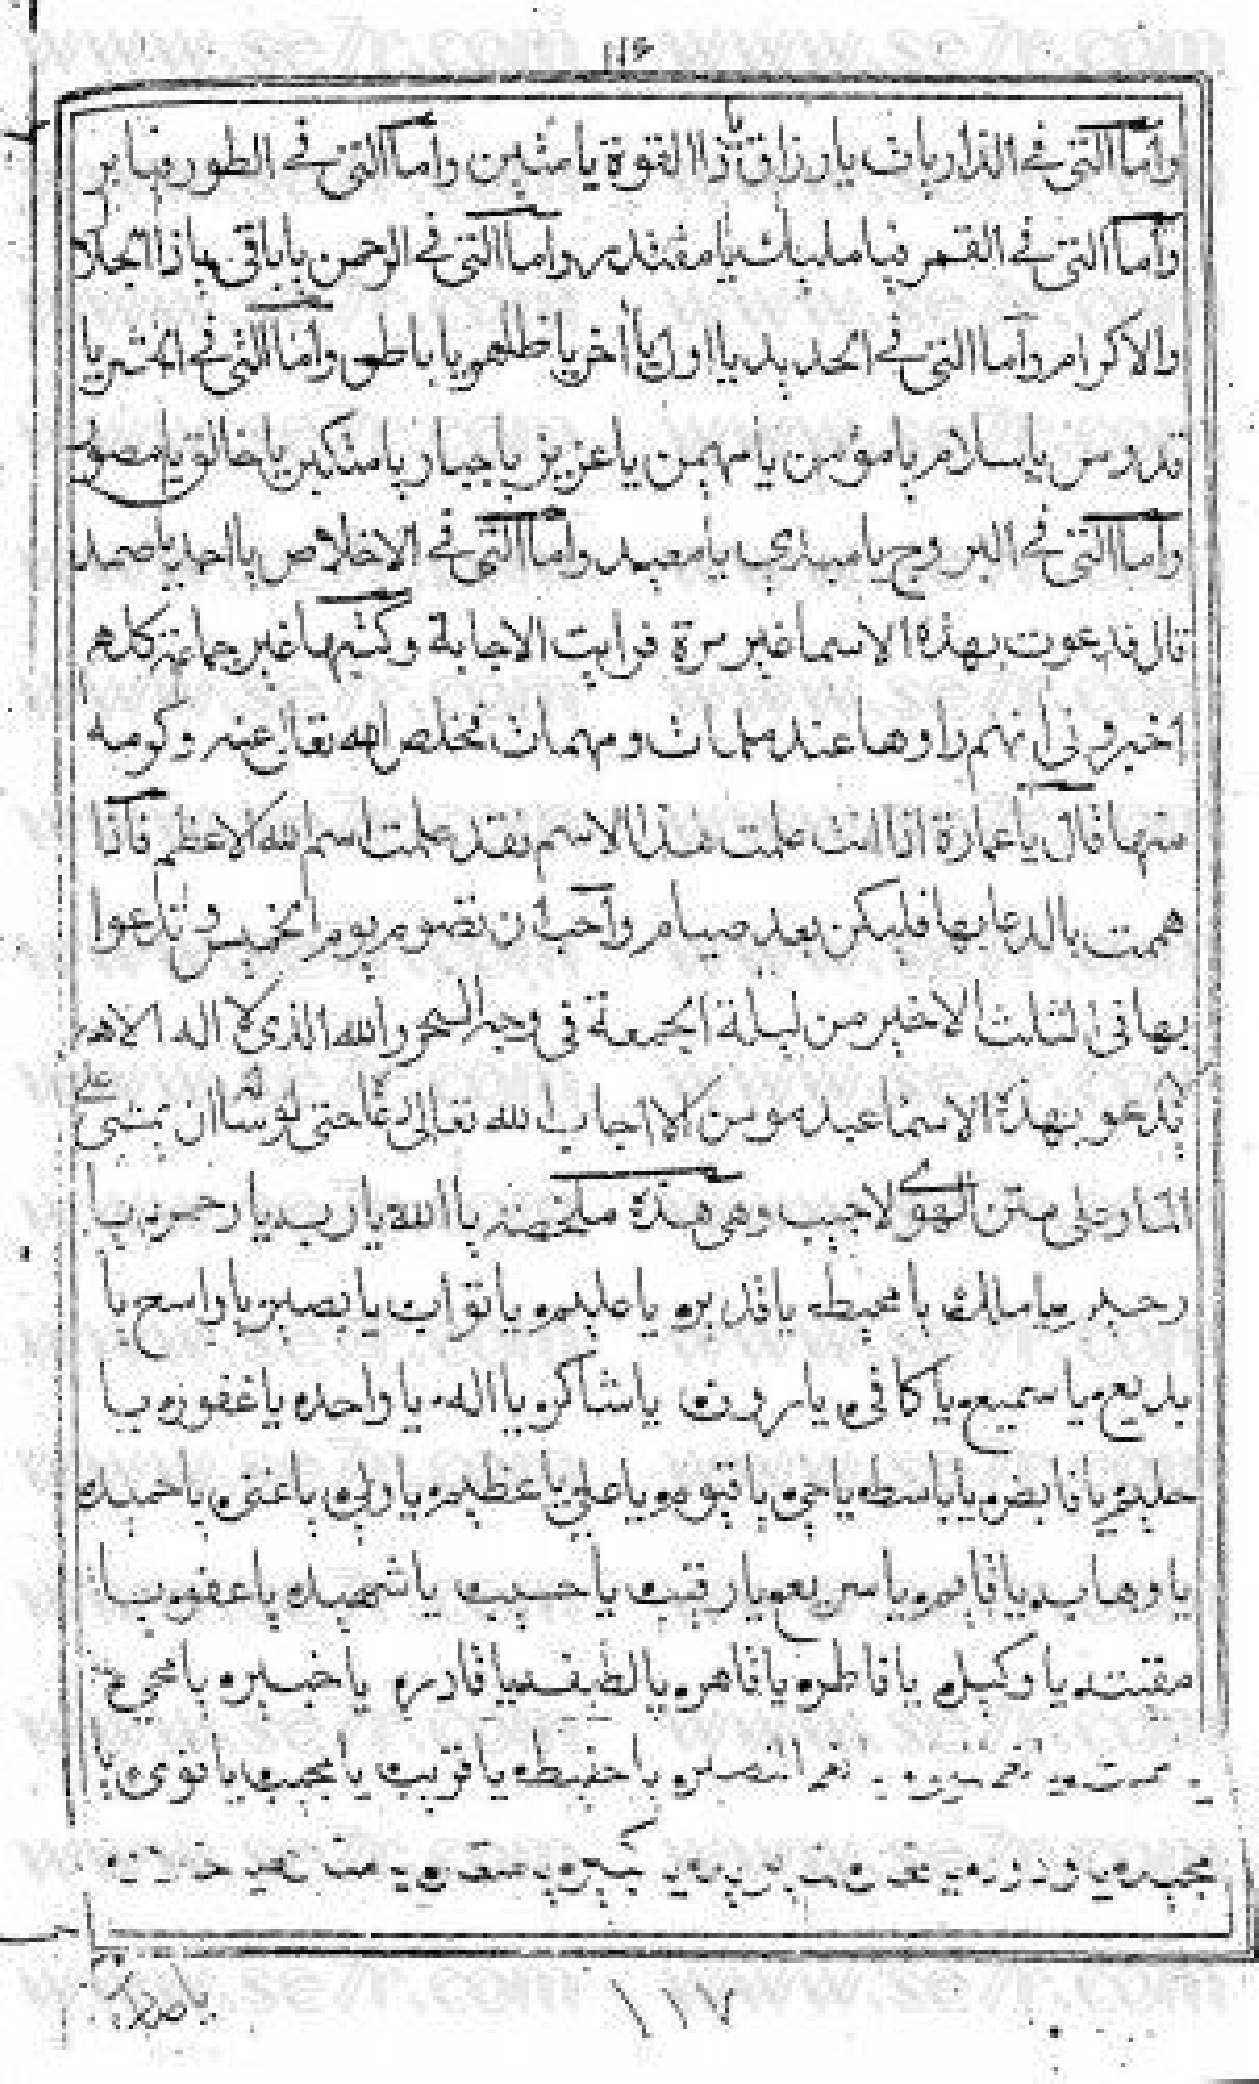 ١١٦
واما التى فى الذاريات يارزاق ياذا القوة يامتين واما التى فى الطور فيابر
واما التى فى القمر فيامليك يامقتدر واما التى فى الرحمن ياباقى ياذا الجلال
والاكرام واما التى فى الحديد يااول يااخر ياظاهر ياباطن واما التى فى الحشر يا
قدوس ياسلام يامؤمن يامهيمن ياعزيز ياجبار يامتكبر ياخالق يامصور
واما التى فى البروج يامبدي يامعيد واما التى فى الاخلاص يااحد ياصمد
قال فدعوت بهذه الاسما غير مرة فرايت الاجابة وكتبها غير جماعة كلهم
اخبروني انهم دعوا عند ملمات ومهمات فخلص الله تعالى عنه وكربه
منها قال ياعمارة اذا انت علمت هذا الاسم فقد علمت اسم الله الاعظم فاذا
هممت بالدعا بها فليكن بعد صيام واحب ان تصوم يوم الخميس وتدعوا
بها فى الثلث الاخير من ليلة الجمعة فى وجه السحر والله الذى لا اله الا هو
يدعو بهذه الاسما عبد مومن الا اجاب الله تعالى دعاه حتى لو شا ان يمشى على
الما وعلى متن الهوا لاجيب وهى هذه ملخصة ياالله يارب يارحمن يا
رحيم يامالك يامحيط ياقدير ياعليم ياتواب يابصير ياواسع يا
بديع ياسميع ياكافى يارووف ياشاكر يااله ياواحد ياغفور يا
حليم ياقابض ياباسط ياحى ياقيوم ياعلي ياعظيم ياولى ياغنى ياحميد
ياوهاب ياقايم ياسريع يارقيب ياحسيب ياشهيد ياعفو يا
مقيت ياوكيل يافاطر ياقاهر يالطيف ياقادر ياخبير يامحي
يامميت نعم النصير ياحفيظ ياقريب يامجيب ياقوى يا
مجيد ياودود
١١٧